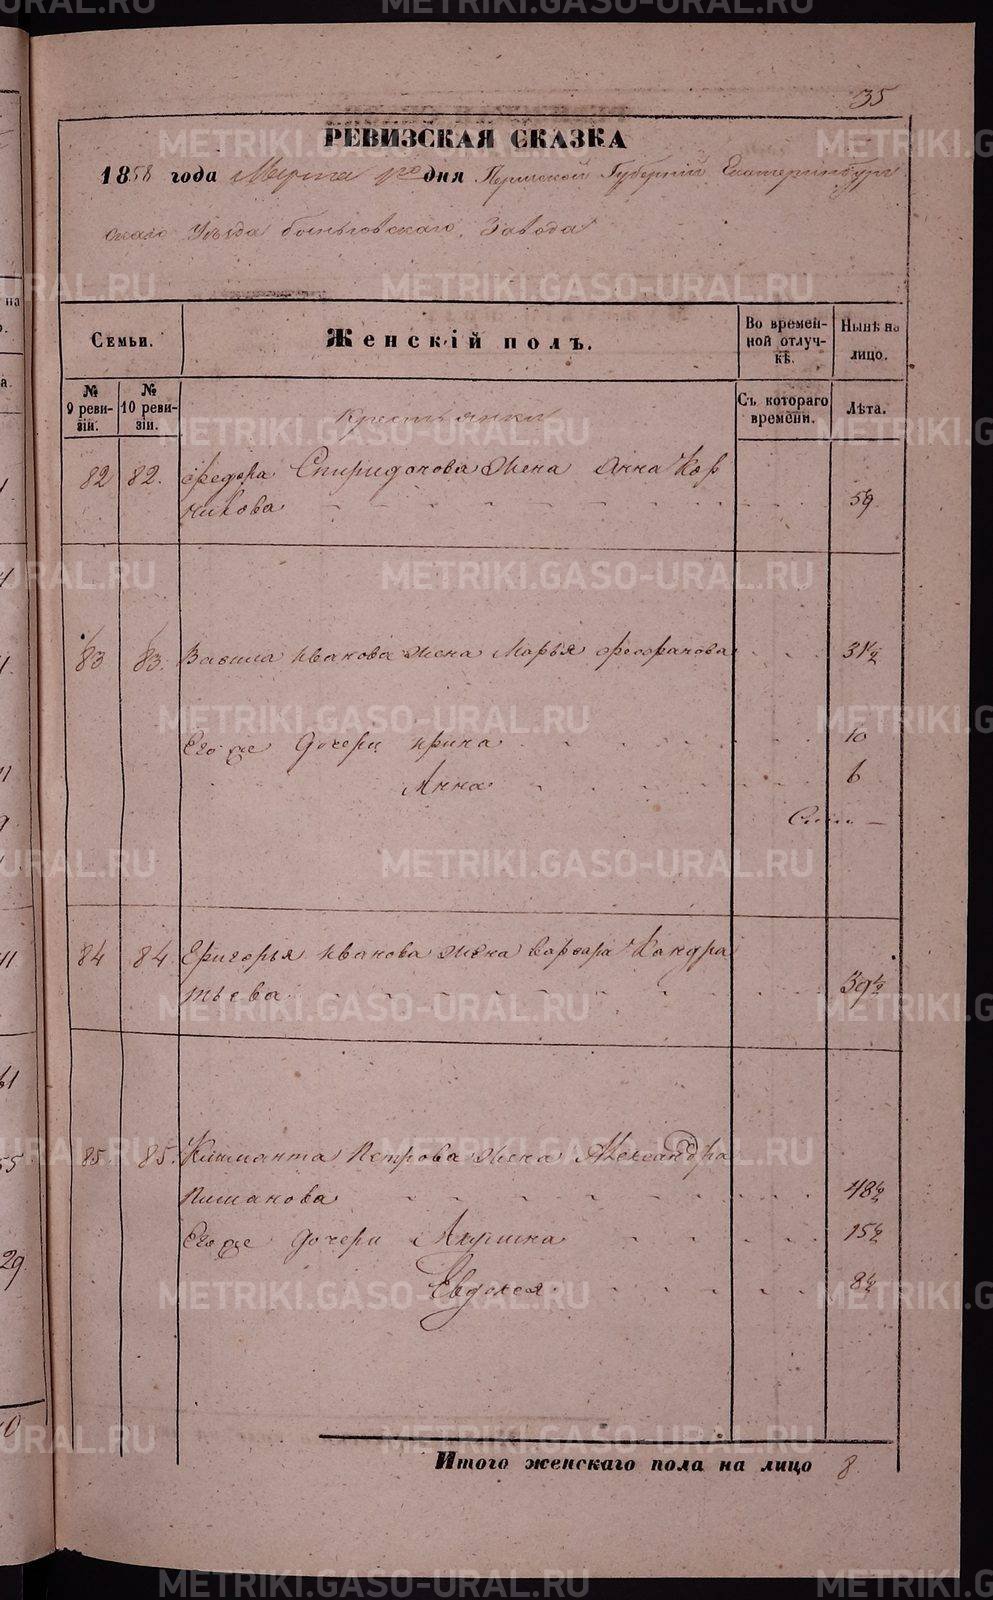 35
РЕВИЗСКАЯ СКАЗКА
1858 года Марта 1го дня Пермской Губерніи Екатеринбург
скаго Уѣзда Быньговскаго Завода
Семьи.
Женскій полъ.
Во времен-
ной отлуч-
кѣ.
Нынѣ на
лицо.
№
9 реви-
зіи.
№
10 реви-
зіи.
Съ котораго
времени.
Лѣта.
Крестьянки
82 82. Федора Спиридонова жена Анна Кор
никова 59
83 83. Васила Иванова жена Марья Феофанова 31½
Его же дочери Ирина 10
Анна 6
84 84. Григорья Иванова жена Варвара Кандра
тьева 39½
85. 85. Климанта Петрова жена Александра
48½
Его же дочери Акулина 15½
Евдокея 8½
Итого женскаго пола на лицо 8
METRIKI.GASO-URAL.RU